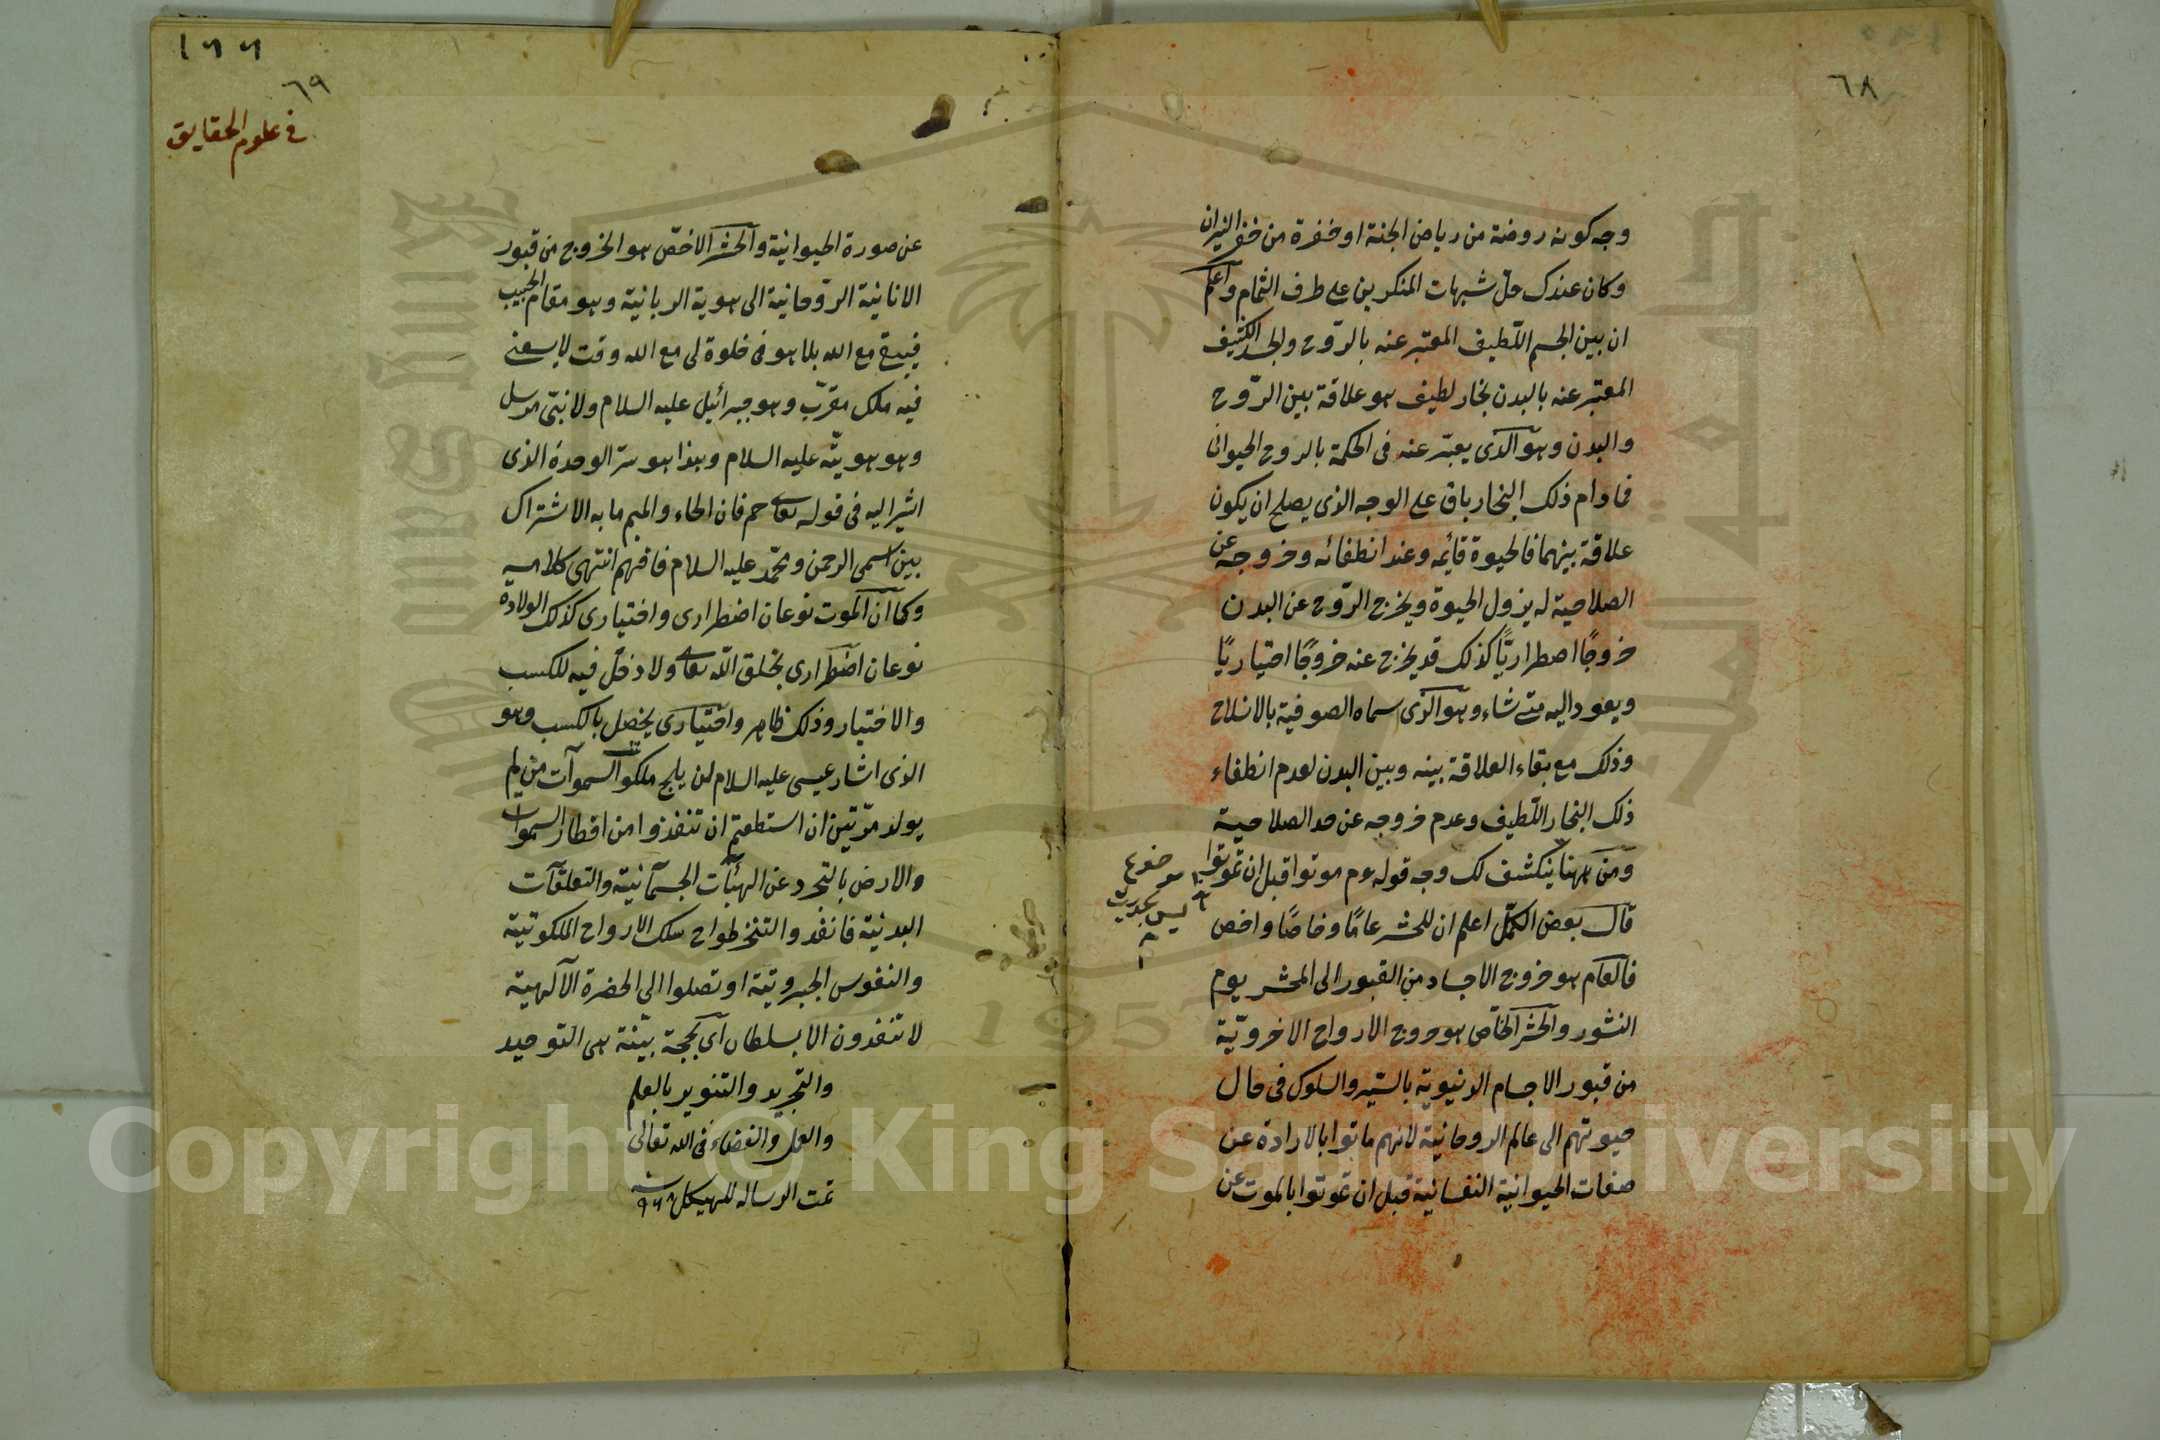 ٦٨
وجه كونه روضة من رياض الجنة او حفرة من حفر النيران
وكان عندك حلّ شبهات المنكرين على طرف الثمام واعلم
ان بين الجسم اللّطيف المعبّر عنه بالرّوح والجسد الكثيف
المعبّر عنه بالبدن بخار لطيف هو علاقة بين الرّوح
والبدن وهو الذى يعبّر عنه فى الحكمة بالروح الحيوانى
فمادام ذلك البخار باق على الوجه الذى يصلح ان يكون
علاقة بينهما فالحيوة قائمه وعند انطفائه وخروجه عن
الصلاحية له يزول الحيوة ويخرج الرّوح عن البدن
خروجًا اضطراريًّا كذلك قد يخرج عنه خروجًا اختياريًّا
ويعود اليه متى شاء وهو الذى سماه الصوفية بالانسلاخ
وذلك مع بقاء العلاقة بينه وبين البدن لعدم انطفاء
ذلك البخار اللّطيف وعدم خروجه عن حد الصلاحية
ومن ههنا ينكشف لك وجه قوله عم موتوا قبل ان تموتوا
موضوع
ليس بحديث
قال بعض الكمّل اعلم ان للحشر عامًا وخاصًا واخص
فالعام هو خروج الاجساد من القبور الى المحشر يوم
النشور والحشر الخاصّ هو خروج الارواح الاخرويّة
من قبور الاجسام الدنيويّة بالسّير والسلوك فى حال
حيوتهم الى عالم الروحانية لانهم ماتوا بالارادة عن
صفات الحيوانية النفسانية قبل ان تموتوا بالموت عن
١٦٦
٦٩
فى علوم الحقايق
عن صورة الحيوانية والحشر الاخصّ هو الخروج من قبور
الانانية الرّوحانية الى هوية الربانية وهو مقام الحبيب
فيبقى مع الله بلا هو فى خلوة لى مع الله وقت لا يسعنى
فيه ملك مقرّب وهو جبرائيل عليه السلام ولا نبىّ مرسل
وهو هويّته عليه السلام وهذا هو سرّ الوحدة الذى
اشير اليه فى قوله تعالى حم فان الحاء والميم ما به الاشتراك
بين اسمى الرحمن ومحمّد عليه السلام فافهم انتهى كلامه
وكما ان الموت نوعان اضطرارى واختيارى كذلك الولادة
نوعان اضطرارى بخلق الله تعالى ولا دخل فيه للكسب
والاختيار وذلك ظاهر واختيارى يحصل بالكسب وهو
الذى اشار عيسى عليه السلام لن يلج ملكوت السموات من لم
يولد مرّتين ان استطعتم ان تنفذوا من اقطار السموات
والارض بالتجرد عن الهيئات الجسمانية والتعلقات
البدنيّة فانفذوا لتنخرطوا فى سلك الارواح الملكوتيّة
والنفوس الجبروتيّة او تصلوا الى الحضرة الآلهية
لا تنفذون الا بسلطان اى بحجة بيّنة هى التوحيد
والتجريد والتنوير بالعلم
والعمل والفناء فى الله تعالى
تمت الرساله للهيكل